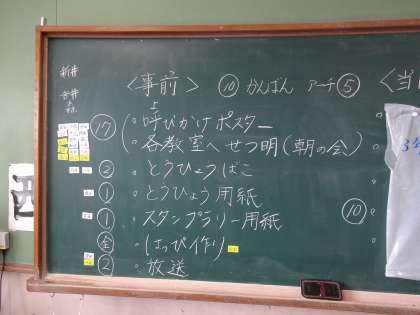 新井
〈事前〉 ⑩ かんばん アーチ ⑤ 〈当
⑰ 。呼びかけポスター
。各教室へせつ明(朝の会)
② 。とうひょうばこ
① 。とうひょう用紙
① 。スタンプラリー用紙 ⑩
全 。はっぴ作り
② 。放送